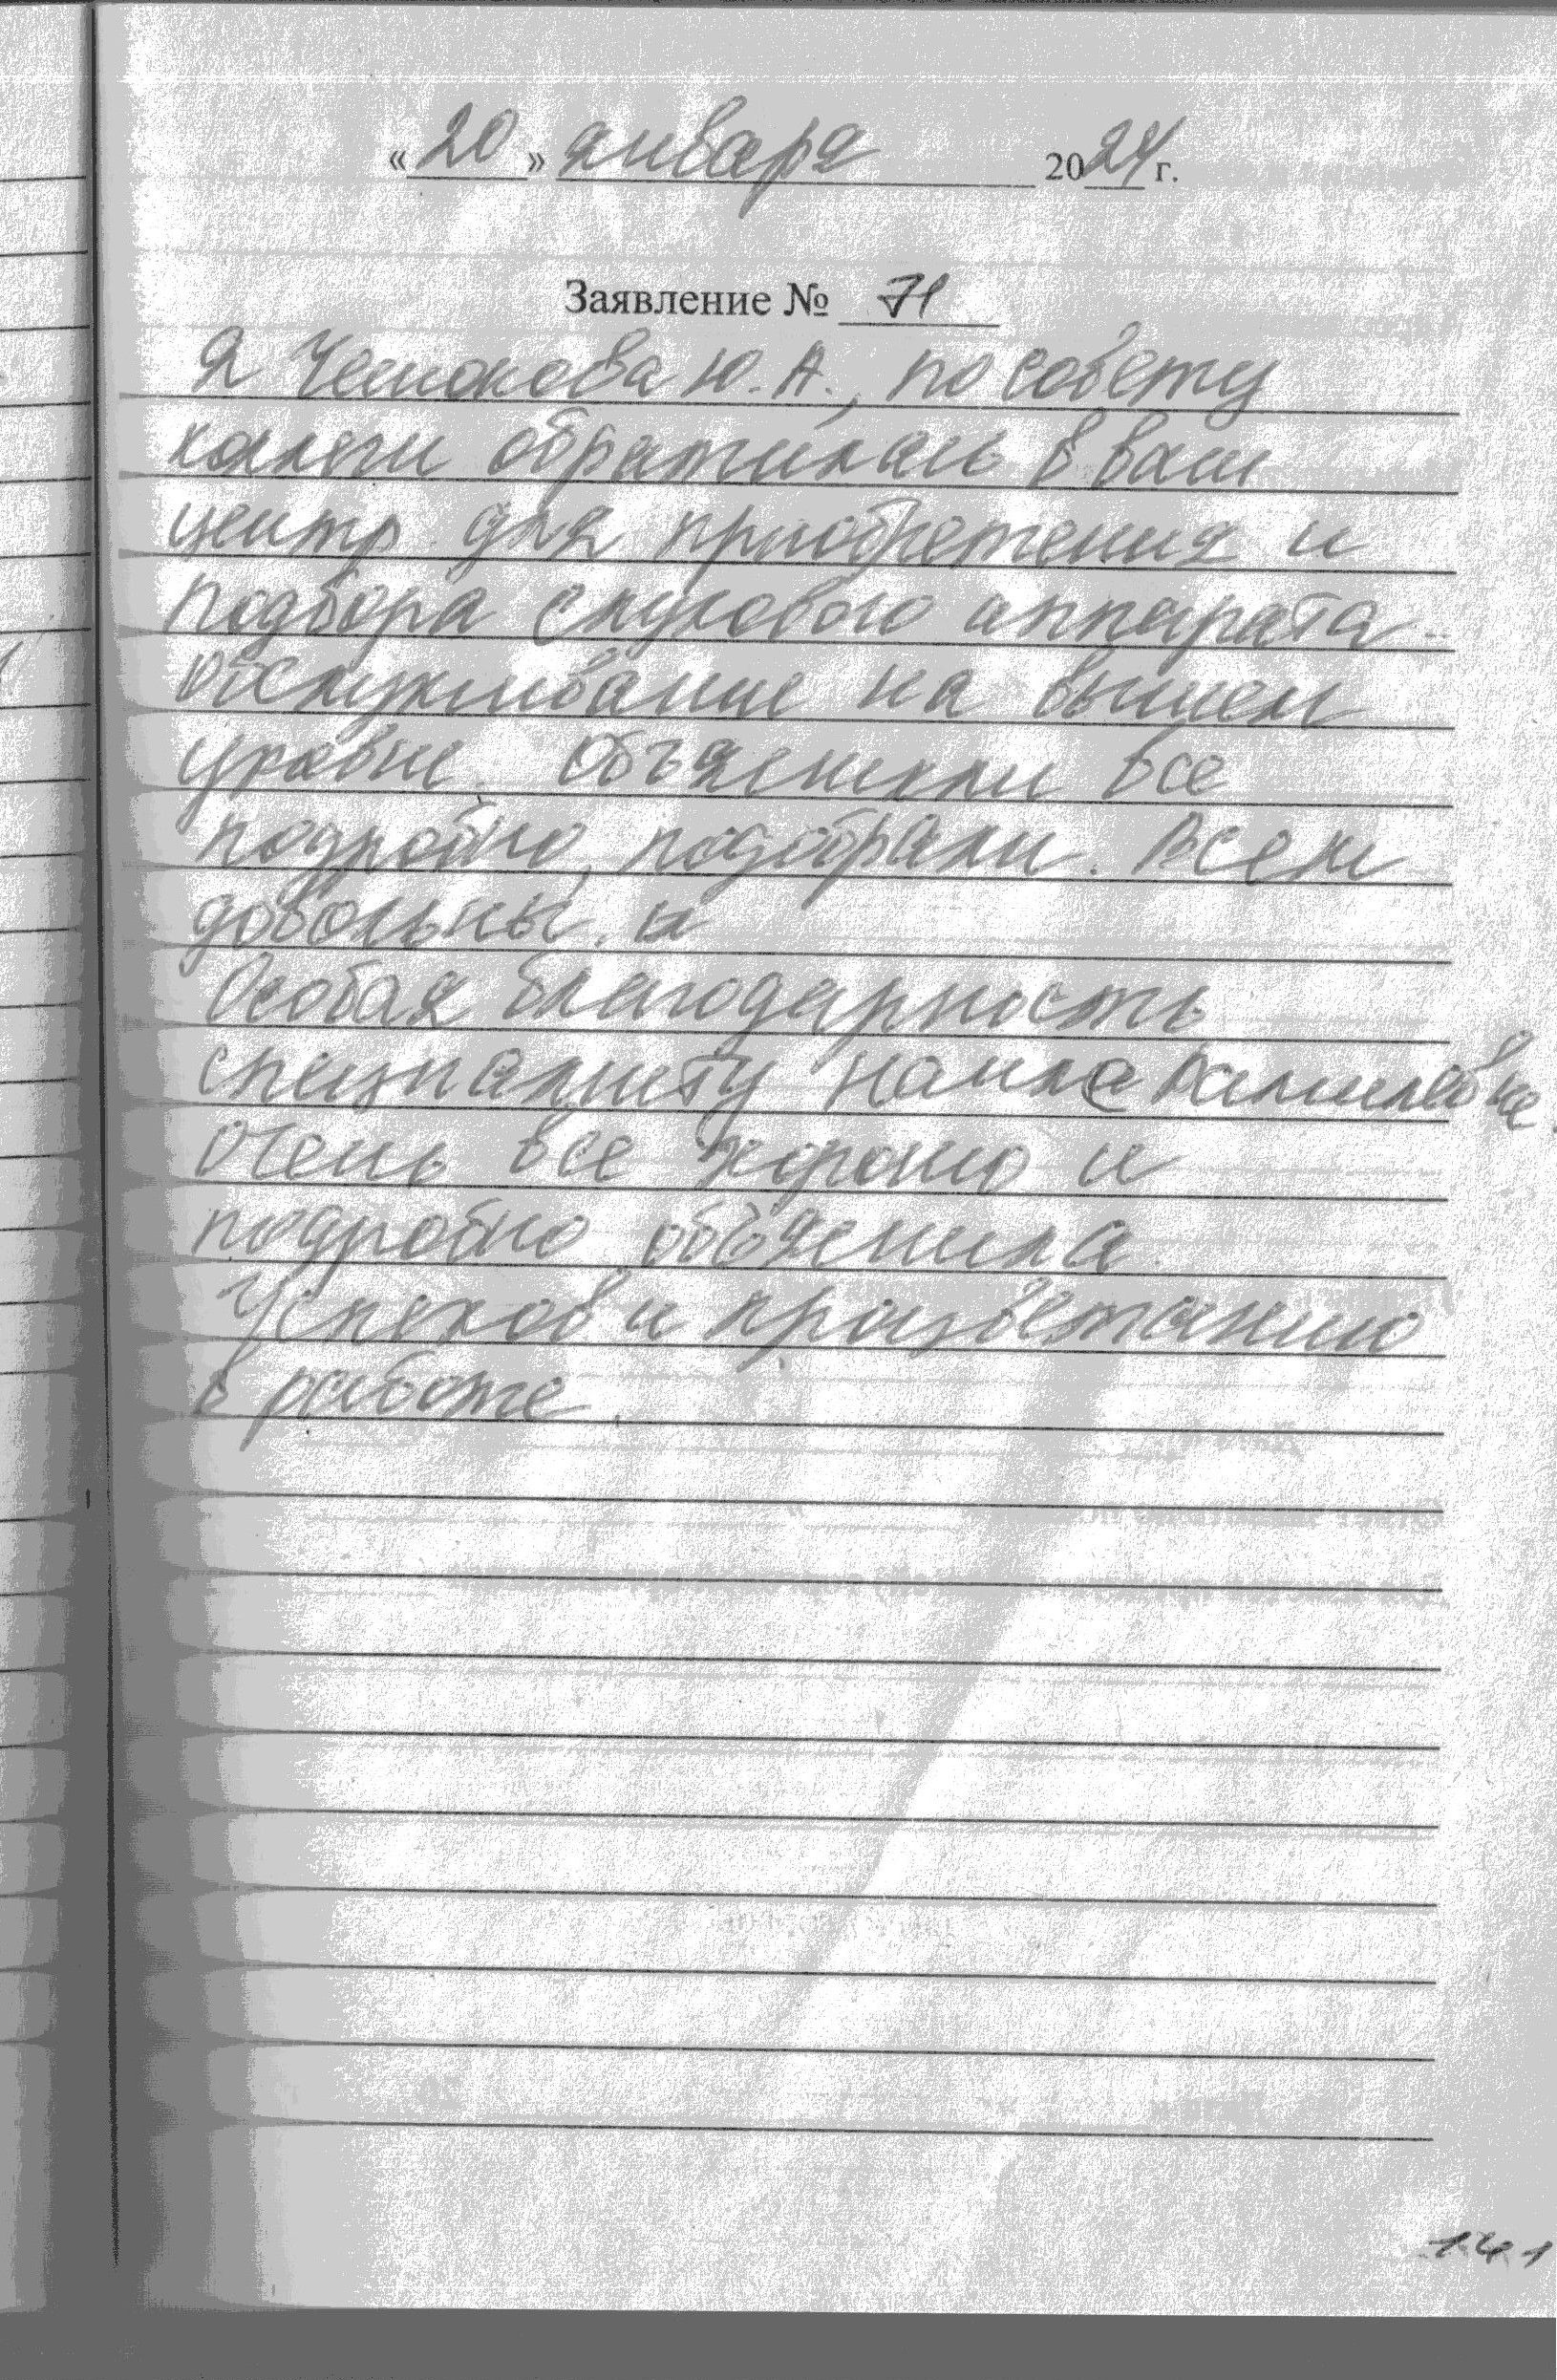 «20» января 2024 г.
Заявление № 71
Я Чеснокова Ю.А., по совету
коллеги обратилась в ваш
центр для приобретения и
подбора слухового аппарата.
Обслуживание на вышем
уровне. Объяснили все
подробно, подобрали. Всем
довольны. и
Особая благодарность
специалисту Наиле Камиловне.
Очень все хорошо и
подробно объяснила.
Успехов и процветанию
в работе.
141